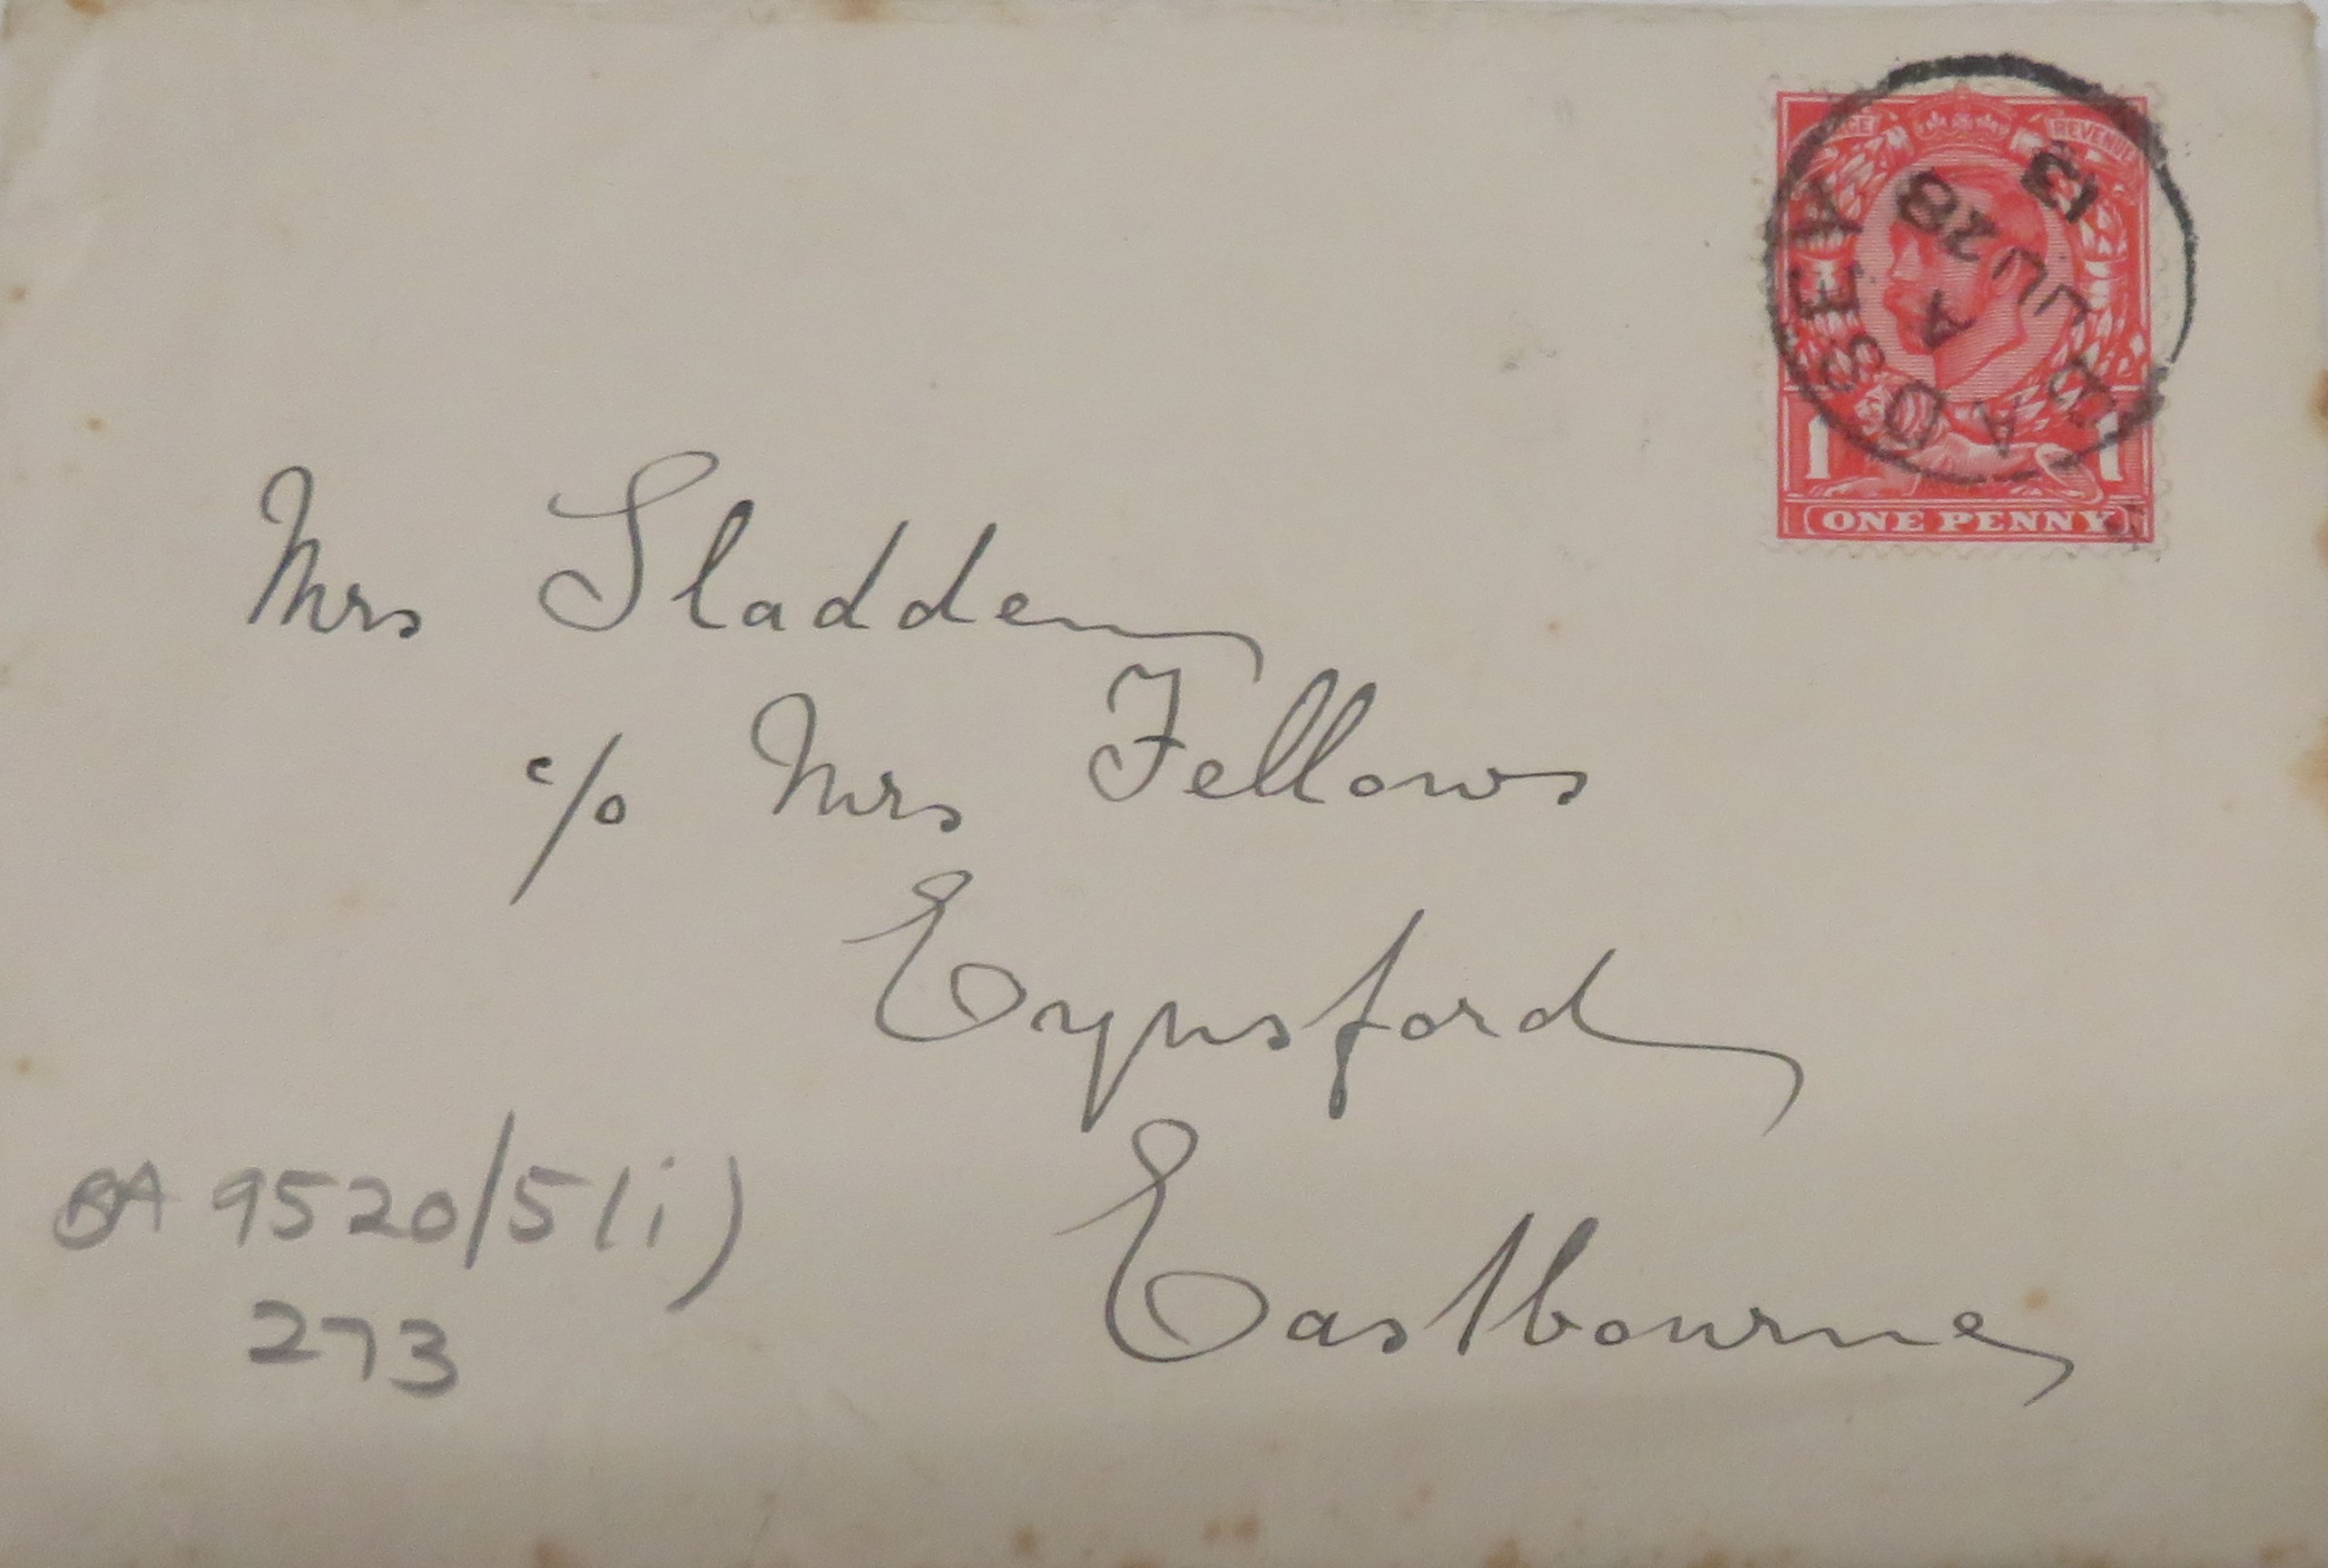 REVENUE
A
JU 28
13
1 1
ONE PENNY
Mrs Sladden
c/o Mrs Fellows
Eynsford
Eastbourne
BA 9520/5(i)
273